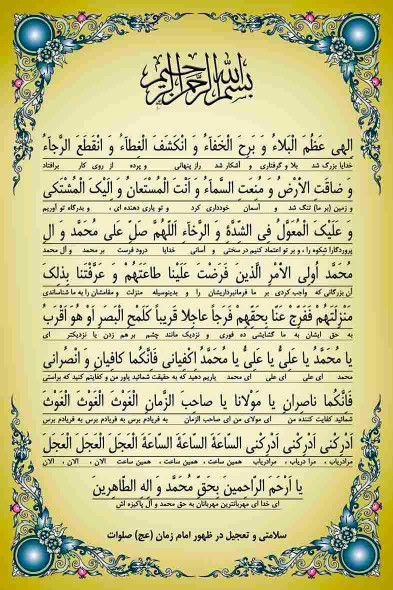 بسم الله الرحمن الرحیم
اِلهی عَظُمَ الْبَلاءُ وَ بَرِحَ الْخَفاءُ وَ انْکَشَفَ الْغِطاءُ وَ انْقَطَعَ الرَّجاءُ
خدایا بزرگ شد بلا و گرفتاری و آشکار شد راز پنهانی و پرده از روی کار برافتاد
وَ ضاقَتِ الْاَرْضُ وَ مُنِعَتِ السَّماءُ وَ اَنْتَ الْمُسْتَعانُ وَ اِلَیْکَ الْمُشْتَکی
و زمین (بر ما) تنگ شد و آسمان خودداری کرد و تو یاری دهنده ای ، و بدرگاه تو آوریم
وَ عَلَیْکَ الْمُعَوَّلُ فِی الشِّدَّةِ وَ الرَّخاءِ اَللّهُمَّ صَلِّ عَلی مُحَمَّدٍ وَ الِ
پروردگارا شکوه را ، و بر تو اعتماد کنیم در سختی و آسانی خدایا درود فرست بر محمد و آل محمد
مُحَمَّدٍ اُولِی الْاَمْرِ الَّذینَ فَرَضْتَ عَلَیْنا طاعَتَهُمْ وَ عَرَّفْتَنا بِذلِکَ
آن بزرگانی که واجب کردی بر ما فرمانبرداریشان را و بدینوسیله منزلت و مقامشان را به ما شناساندی
مَنْزِلَتَهُمْ فَفَرِّجْ عَنّا بِحَقِّهِمْ فَرَجاً عاجِلاً قَریباً کَلَمْحِ الْبَصَرِ اَوْ هُوَ اَقْرَبُ
به حق ایشان به ما گشایشی ده فوری و نزدیک مانند چشم بر هم زدن یا نزدیکتر ای
یا مُحَمَّدُ یا عَلِیُّ یا عَلِیُّ یا مُحَمَّدُ اِکْفِیانی فَاِنَّکُما کافِیانِ وَ انْصُرانی
محمد ای علی ای علی ای محمد یاریم دهید که به حقیقت شمائید یاور من و کفایتم کنید که براستی
فَاِنَّکُما ناصِرانِ یا مَوْلانا یا صاحِبَ الزَّمانِ الْغَوْثَ الْغَوْثَ الْغَوْثَ
شمائید کفایت کننده من ای مولای من ای صاحب الزمان به فریادم برس به فریادم برس به فریادم برس
اَدْرِکْنی اَدْرِکْنی اَدْرِکْنی السّاعَةَ السّاعَةَ السّاعَةَ الْعَجَلَ الْعَجَلَ الْعَجَلَ
مرادریاب ، مرا دریاب ، مرادریاب همین ساعت ، همین ساعت ، همین ساعت الان ، الان ، الان
یا اَرْحَمَ الرّاحِمینَ بِحَقِّ مُحَمَّدٍ وَ الِهِ الطّاهِرینَ
ای خدا ای مهربانترین مهربانان به حق محمد و آل پاکیزه اش
سلامتی و تعجیل در ظهور امام زمان (عج) صلوات